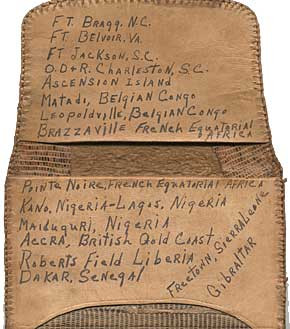 FT. BRAGG, N.C.
FT. BELVOIR, VA.
FT JACKSON, S.C.
O.D&R. CHARLESTON, S.C.
ASCENSION ISLAND
MATADI, BELGIAN CONGO
LEOPOLDVILLE, BELGIAN CONGO
BRAZZAVILLE FRENCH EQUATORIAL
AFRICA
POINTE NOIRE, FRENCH EQUATORIAL AFRICA
KANO, NIGERIA-LAGOS, NIGERIA
MAIDUGURI, NIGERIA
ACCRA, BRITISH GOLD COAST
ROBERTS FIELD LIBERIA
DAKAR, SENEGAL
FREETOWN, SIERRA LEONE
GIBRALTAR